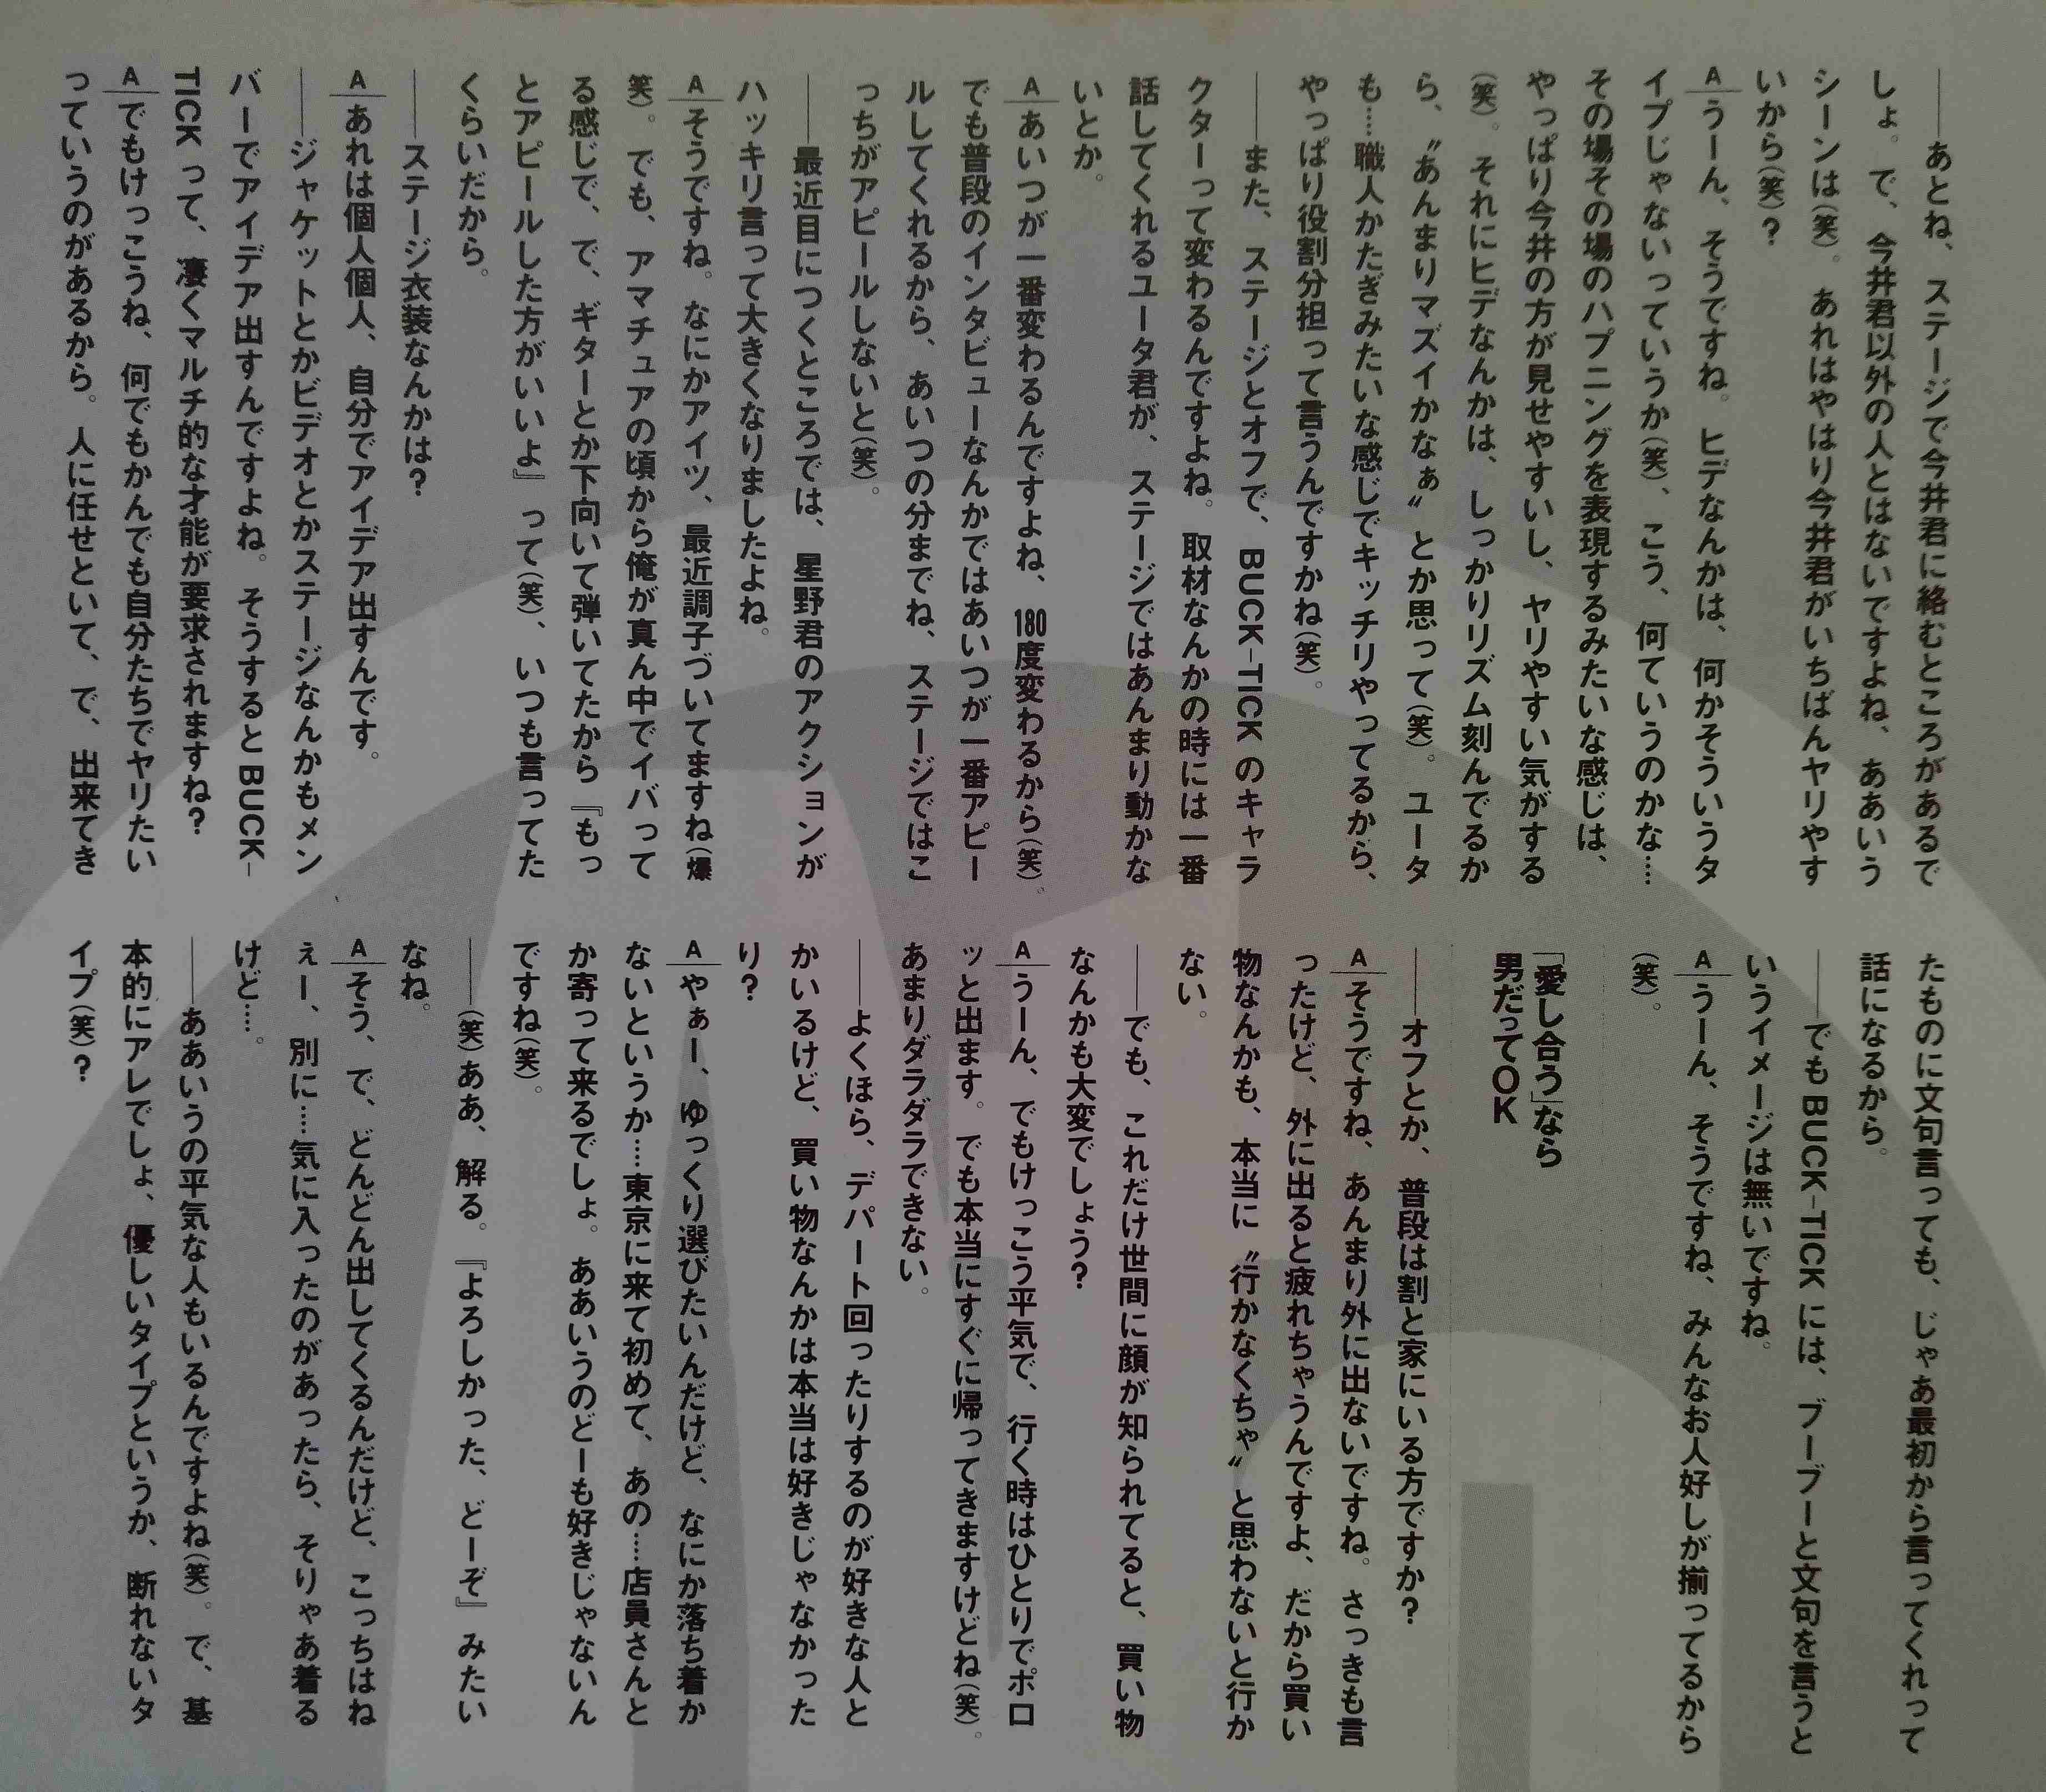 ――あとね、ステージで今井君に絡むところがあるで
しょ。で、今井君以外の人とはないですよね、ああいう
シーンは(笑)。あれはやはり今井君がいちばんヤリやす
いから(笑)?
A うーん、そうですね。ヒデなんかは、何かそういうタ
イプじゃないっていうか(笑)、こう、何ていうのかな……
その場その場のハプニングを表現するみたいな感じは、
やっぱり今井の方が見せやすいし、ヤリやすい気がする
(笑)。それにヒデなんかは、しっかりリズム刻んでるか
ら、〝あんまりマズイかなぁ〟とか思って(笑)。ユータ
も…職人かたぎみたいな感じでキッチリやってるから、
やっぱり役割分担って言うんですかね(笑)。
――また、ステージとオフで、BUCK-TICKのキャラ
クターって変わるんですよね。取材なんかの時には一番
話してくれるユータ君が、ステージではあんまり動かな
いとか。
A あいつが一番変わるんですよね、180度変わるから(笑)。
でも普段のインタビューなんかではあいつが一番アピー
ルしてくれるから、あいつの分までね、ステージではこ
っちがアピールしないと(笑)。
――最近目につくところでは、星野君のアクションが
ハッキリ言って大きくなりましたよね。
A そうですね。なにかアイツ、最近調子づいてますね(爆
笑)。でも、アマチュアの頃から俺が真ん中でイバって
る感じで、で、ギターとか下向いて弾いてたから『もっ
とアピールした方がいいよ』って(笑)、いつも言ってた
くらいだから。
――ステージ衣装なんかは?
A あれは個人個人、自分でアイデア出すんです。
――ジャケットとかビデオとかステージなんかもメン
バーでアイデア出すんですよね。そうするとBUCK-
TICKって、凄くマルチ的な才能が要求されますね?
A でもけっこうね、何でもかんでも自分たちでヤリたい
っていうのがあるから。人に任せといて、で、出来てき
たものに文句言っても、じゃあ最初から言ってくれって
話になるから。
――でもBUCK-TICKには、ブーブーと文句を言うと
いうイメージは無いですね。
A うーん、そうですね、みんなお人好しが揃ってるから
(笑)。
「愛し合う」なら
男だってOK
――オフとか、普段は割と家にいる方ですか?
A そうですね、あんまり外に出ないですね。さっきも言
ったけど、外に出ると疲れちゃうんですよ、だから買い
物なんかも、本当に〝行かなくちゃ〟と思わないと行か
ない。
――でも、これだけ世間に顔が知られてると、買い物
なんかも大変でしょう?
A うーん、でもけっこう平気で、行く時はひとりでポロ
ッと出ます。でも本当にすぐに帰ってきますけどね(笑)。
あまりダラダラできない。
――よくほら、デパート回ったりするのが好きな人と
かいるけど、買い物なんかは本当は好きじゃなかった
り?
A やぁー、ゆっくり選びたいんだけど、なにか落ち着か
ないというか…東京に来て初めて、あの…店員さんと
か寄って来るでしょ。ああいうのどーも好きじゃないん
ですね(笑)。
――(笑)ああ、解る。『よろしかった、どーぞ』みたい
なね。
A そう、で、どんどん出してくるんだけど、こっちはね
ぇー、別に……気に入ったのがあったら、そりゃあ着る
けど…。
――ああいうの平気な人もいるんですよね(笑)。で、基
本的にアレでしょ、優しいタイプというか、断れないタ
イプ(笑)?